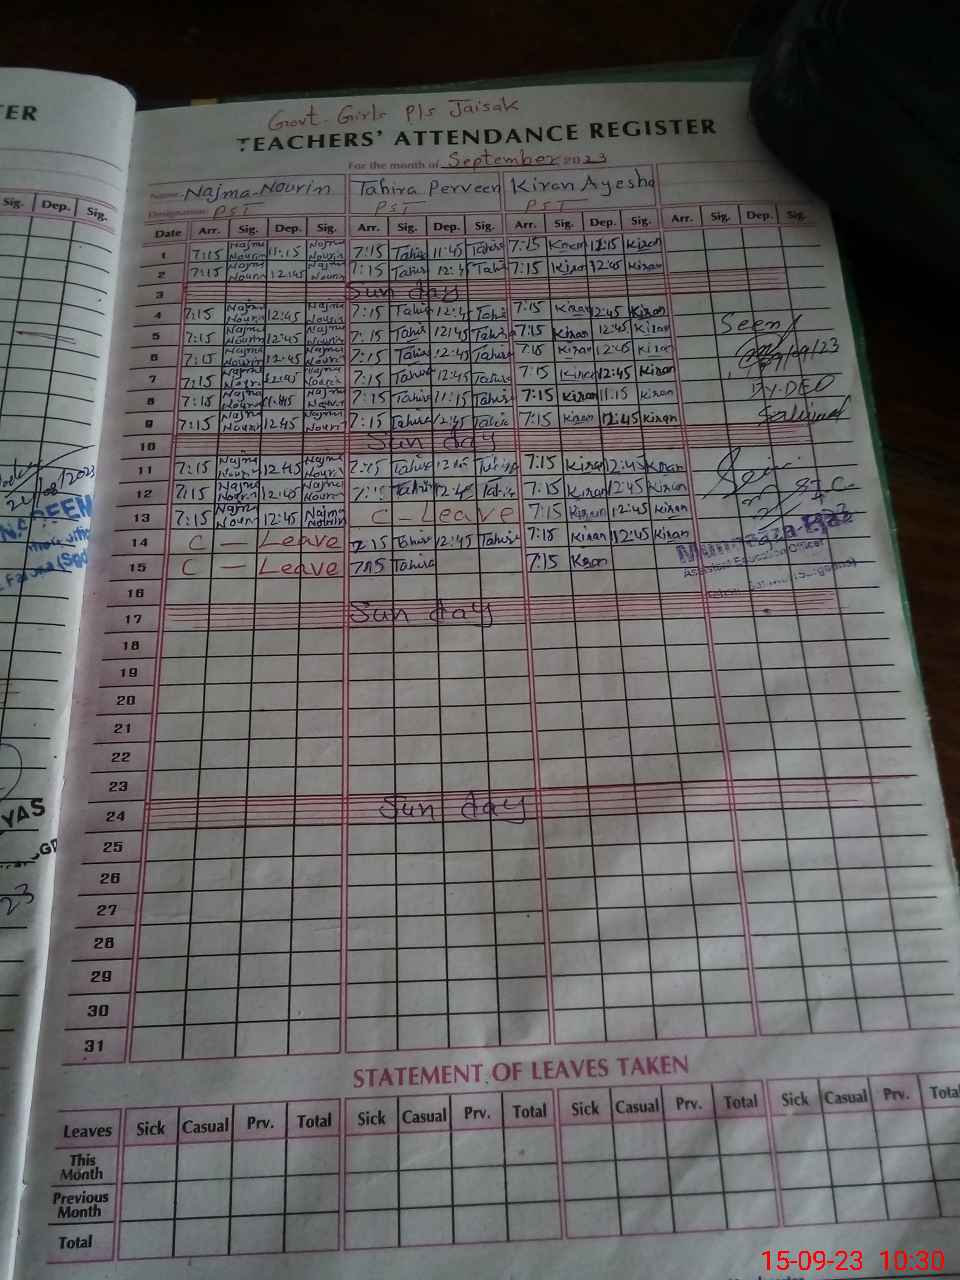 TER
Govt. Girls P/s Jaisak
TEACHERS' ATTENDANCE REGISTER
For the month of September 2023
Name Najma Nourin Tahira Perveen Kiran Ayesha
Designation PST PST PST
Sig. Dep. Sig.
Date Arr. Sig. Dep. Sig. Arr. Sig. Dep. Sig. Arr. Sig. Dep. Sig. Arr. Sig. Dep. Sig.
1 7:15 Najma Nourin 11:15 Najma Nourin 7:15 Tahira 11:45 Tahira 7:15 Kiran 11:15 Kiran
2 7:15 Najma Nourin 12:45 Najma Nourin 7:15 Tahira Tahira 7:15 Kiran 12:45 Kiran
3 Sunday
4 7:15 Najma Nourin 12:45 Najma Nourin 7:15 Tahira Tahira 7:15 Kiran 12:45 Kiran
5 7:15 Najma Nourin 12:45 Najma Nourin 7:15 Tahira 12:45 Tahira 7:15 Kiran 12:45 Kiran
6 7:15 Najma Nourin 12:45 Najma Nourin 7:15 Tahira 12:45 Tahira 7:15 Kiran 12:45 Kiran
7 7:15 Najma Nourin 12:45 Najma Nourin 7:15 Tahira 12:45 Tahira 7:15 Kiran 12:45 Kiran
8 7:15 Najma Nourin Najma Nourin 7:15 Tahira 11:15 Tahira 7:15 Kiran 11:15 Kiran
9 7:15 Najma Nourin 12:45 Najma Nourin 7:15 Tahira 12:45 Tahira 7:15 Kiran 12:45 Kiran
Seen
09/09/23
Dy-DEO
10 Sunday
11 7:15 Najma Nourin 12:45 Najma Nourin 7:15 Tahira 12:45 Tahira 7:15 Kiran 12:45 Kiran
12 7:15 Najma Nourin 12:45 Najma Nourin Tahira 12:45 Tahira 7:15 Kiran 12:45 Kiran
13 7:15 Najma Nourin 12:45 Najma Nourin C - Leave 7:15 Kiran 12:45 Kiran
14 C - Leave 7:15 Tahira 12:45 Tahira 7:15 Kiran 12:45 Kiran
15 C - Leave 7:15 Tahira 7:15 Kiran
Assistant Education Officer
16
17 Sunday
18
19
20
21
22
23
24 Sunday
25
26
27
28
29
30
31
YAS
23
STATEMENT OF LEAVES TAKEN
Leaves Sick Casual Prv. Total Sick Casual Prv. Total Sick Casual Prv. Total Sick Casual Prv. Total
This Month
Previous Month
Total
15-09-23 10:30